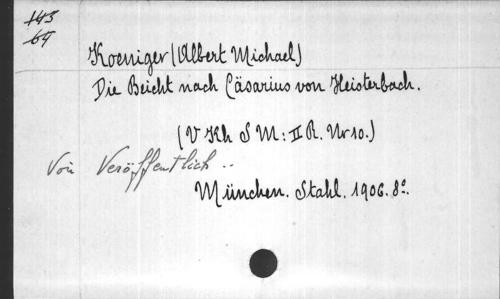 143
69
Koeniger (Albert Michael)
Die Beicht nach Cäsarius von Heisterbach.
(V Kh S M: II R. Nr 10.)
Voir Veröffentlich..
München. Stahl. 1906. 8º.